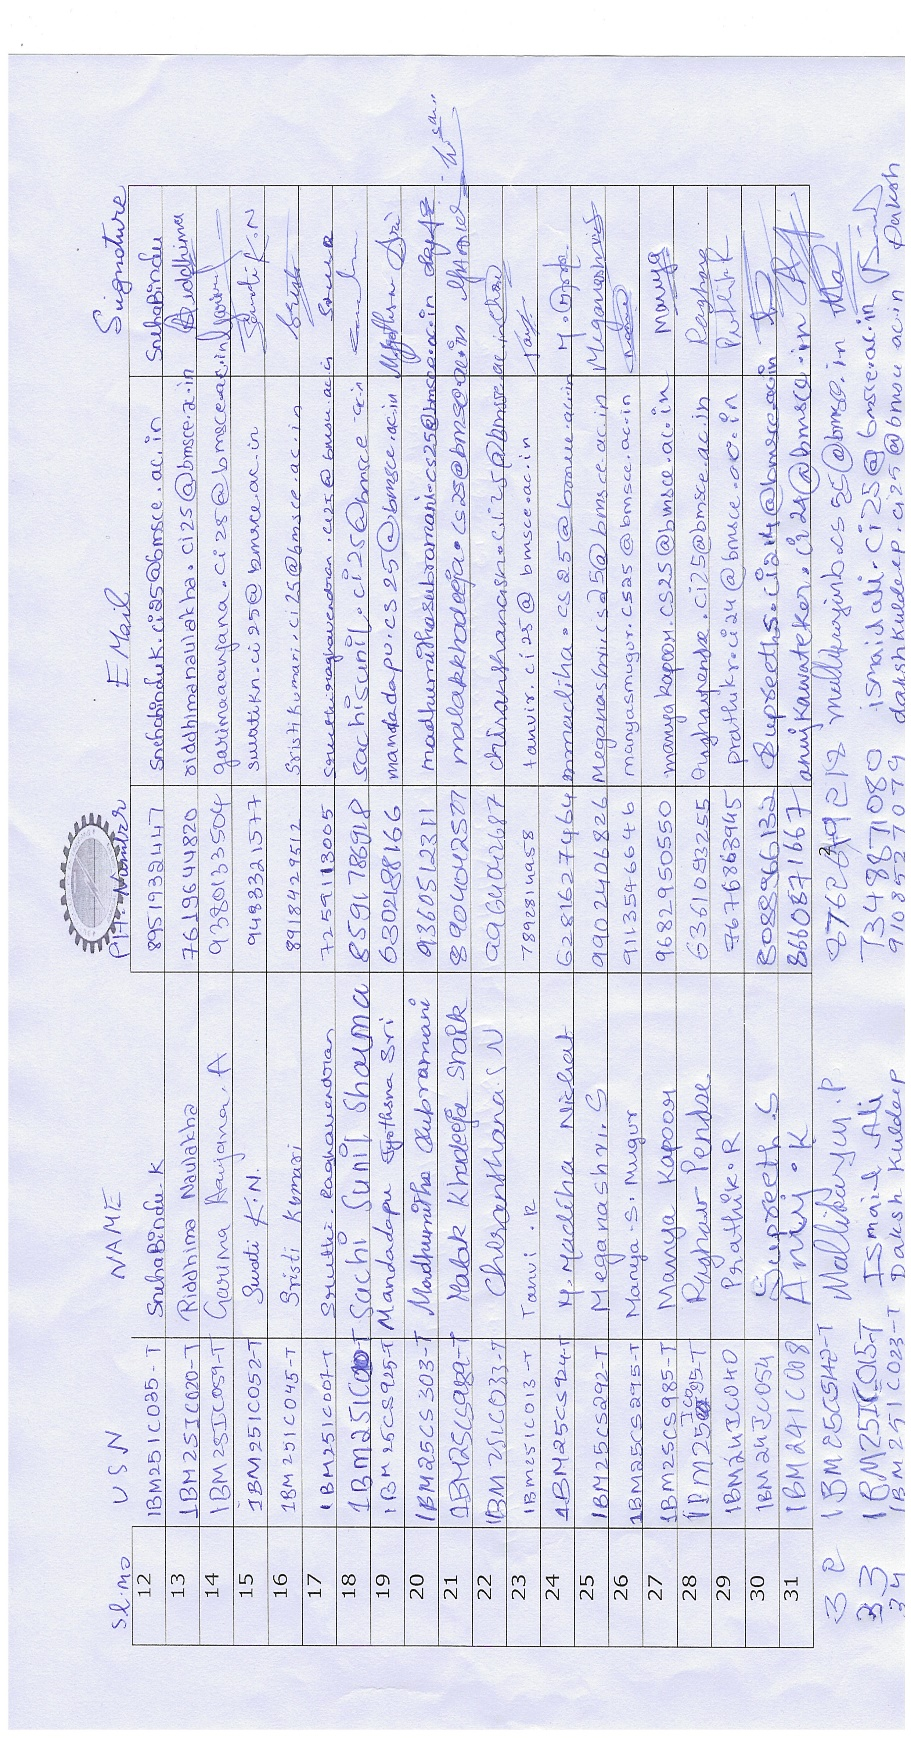 Sl.no USN NAME Ph. Number E Mail Signature
12 1BM25IC035-T SnehaBindu.K 8951932447 Snehabinduk.ci25@bmsce.ac.in SnehaBindu
13 1BM25IC020-T Riddhima Naulakha 7619644820 riddhimanaulakha.ci25@bmsce.ac.in Riddhima
14 1BM25IC059-T Garima Aanjana.A 9380133504 garimaaanjana.ci25@bmsce.ac.in
15 1BM25IC052-T Swati K.N. 9483321577 swatikn.ci25@bmsce.ac.in Swati K.N
16 1BM25IC045-T Sristi Kumari 8918429512 Sristikumari.ci25@bmsce.ac.in
17 1BM25IC007-T Sruthi Raghavendran 7259113005 sruthiraghavendran.ci25@bmsce.ac.in
18 Sachi Sunil Sharma 8591786918 sachisunil.ci25@bmsce.ac.in
19 1BM25CS925-T Mandadapu Jyothsna Sri 6302188166 mandadapu.cs25@bmsce.ac.in Jyothsna Sri
20 1BM25CS303-T Madhumitha Subramani 9360512311 madhumithasubramani.cs25@bmsce.ac.in
21 Malak Khadeeja Shaik 8904042577 malakkhadeeja.cs25@bmsce.ac.in
22 1BM25IC033-T Chiranthana.S N chiranthanasn.ci25@bmsce.ac.in
23 1BM25IC013-T Tanvi.R tanvir.ci25@bmsce.ac.in
24 1BM25CS924-T M. Madiha Nishat 6281627464 mmadiha.cs25@bmsce.ac.in
25 1BM25CS292-T Meganashri.S 9902406826 Meganashri.cs25@bmsce.ac.in Meganashri
26 1BM25CS295-T Manya.S.Mugur 9113546646 manyasmugur.cs25@bmsce.ac.in
27 1BM25CS985-T Manya Kapoor 9682950550 manyakapoor.cs25@bmsce.ac.in Manya
28 Raghav Pendse 6361093255 raghavpendse.ci25@bmsce.ac.in Raghav
29 1BM24IC040 Prathik.R 7676863945 prathikr.ci24@bmsce.ac.in Prathik R
30 1BM24IC054 Supreeth.S 8088966132 Supreeths.ci24@bmsce.ac.in
31 1BM24IC008 Anuj.K 8660871667 anujkawatekar.ci24@bmsce.ac.in
32 Mallikarjun.P mallikarjunb.cs25@bmse.in
33 1BM25IC015-T Ismail Ali 7348871080 ismailali.ci25@bmsce.ac.in
34 1BM25IC023-T Daksh Kuldeep 9108527079 dakshkuldeep.ci25@bmsce.ac.in Daksh